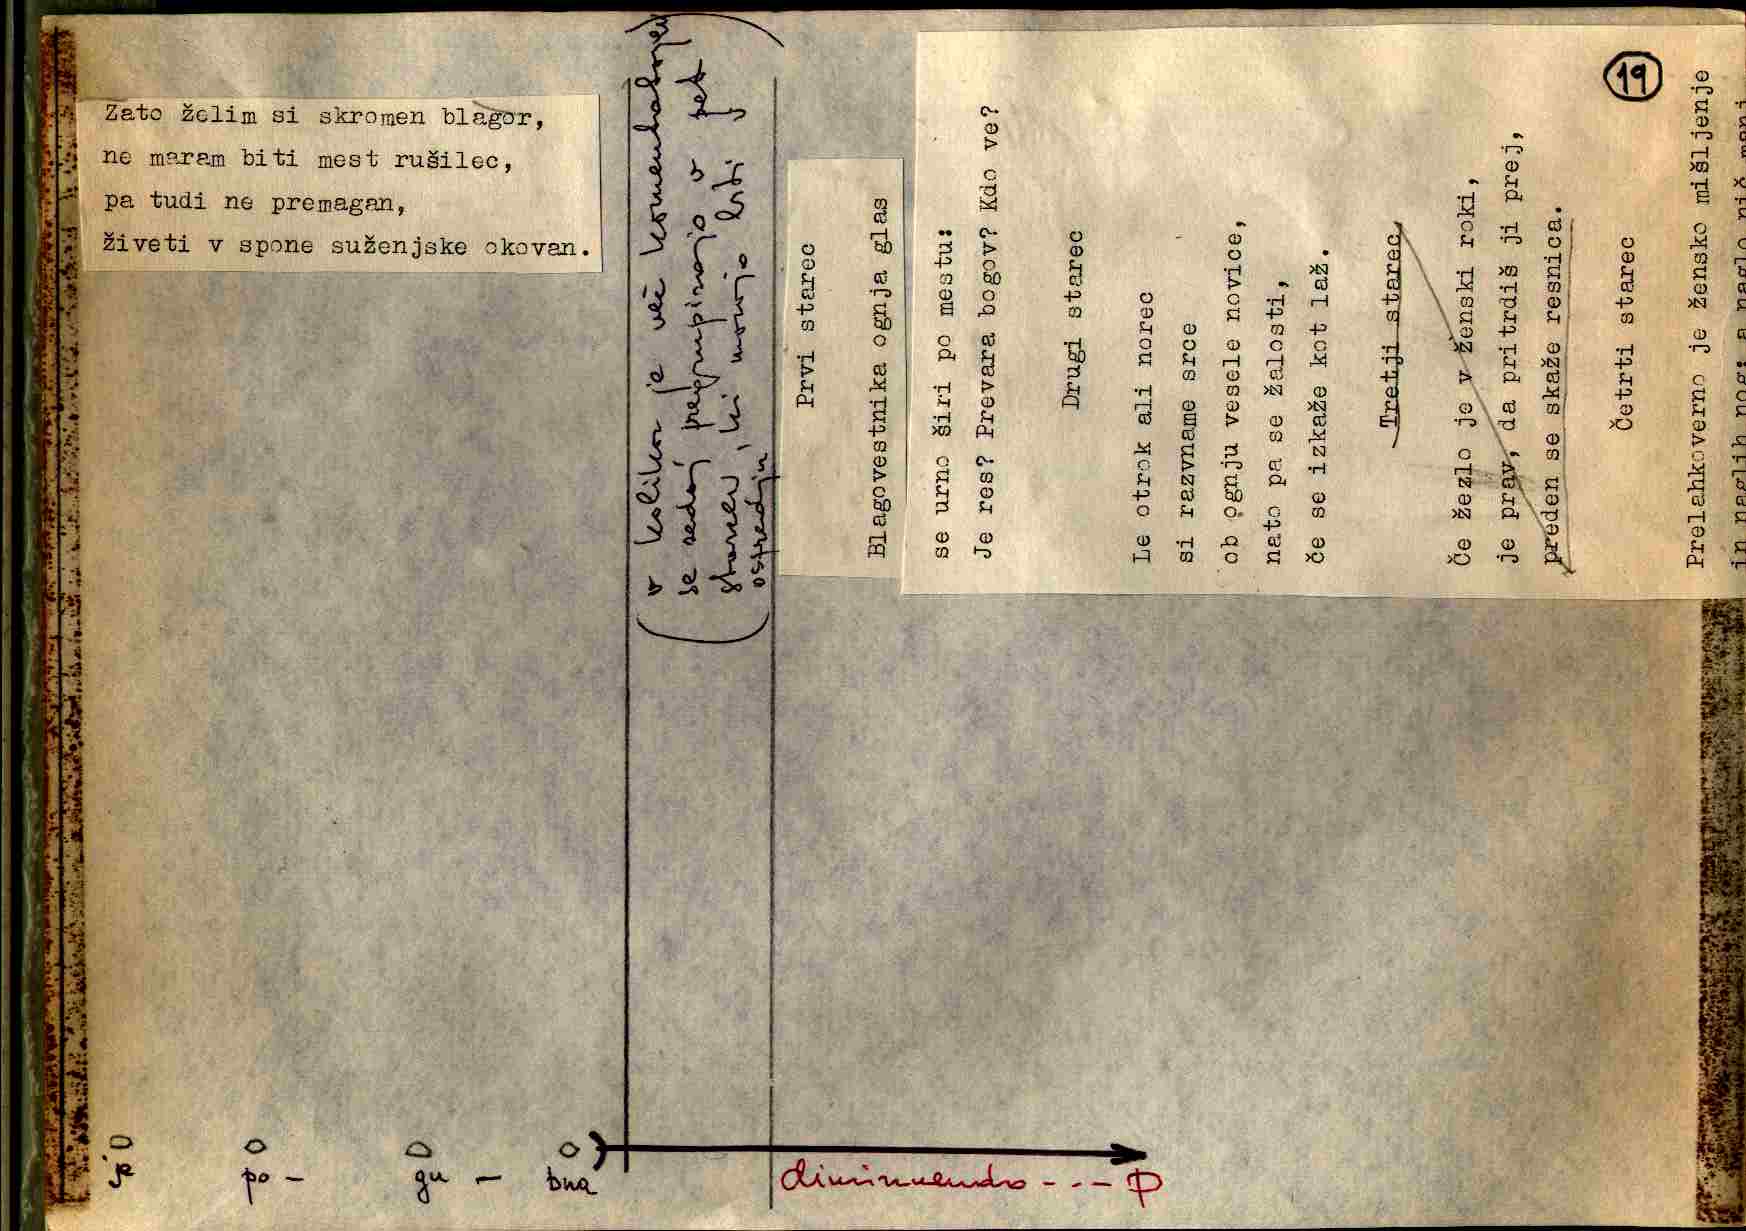 Zato želim si skromen blagor,
ne maram biti mest rušilec,
pa tudi ne premagan,
živeti v spone suženjske okovan.
(v kolikor je več komentatorjev
se sedaj pregrupirajo v pet
starcev, ki morajo biti v
osredju)
19
Prvi starec
Blagovestnika ognja glas
se urno širi po mestu:
Je res? Prevara bogov? Kdo ve?
Drugi starec
Le otrok ali norec
si razvname srce
ob ognju vesele novice,
nato pa se žalosti,
če se izkaže kot laž.
Tretji starec
Če žezlo je v ženski roki,
je prav, da pritrdiš ji prej,
preden se skaže resnica.
Četrti starec
Prelahkoverno je žensko mišljenje
in naglih nog; a naglo nič manj
je po- gu- bna
diminuendo --- p